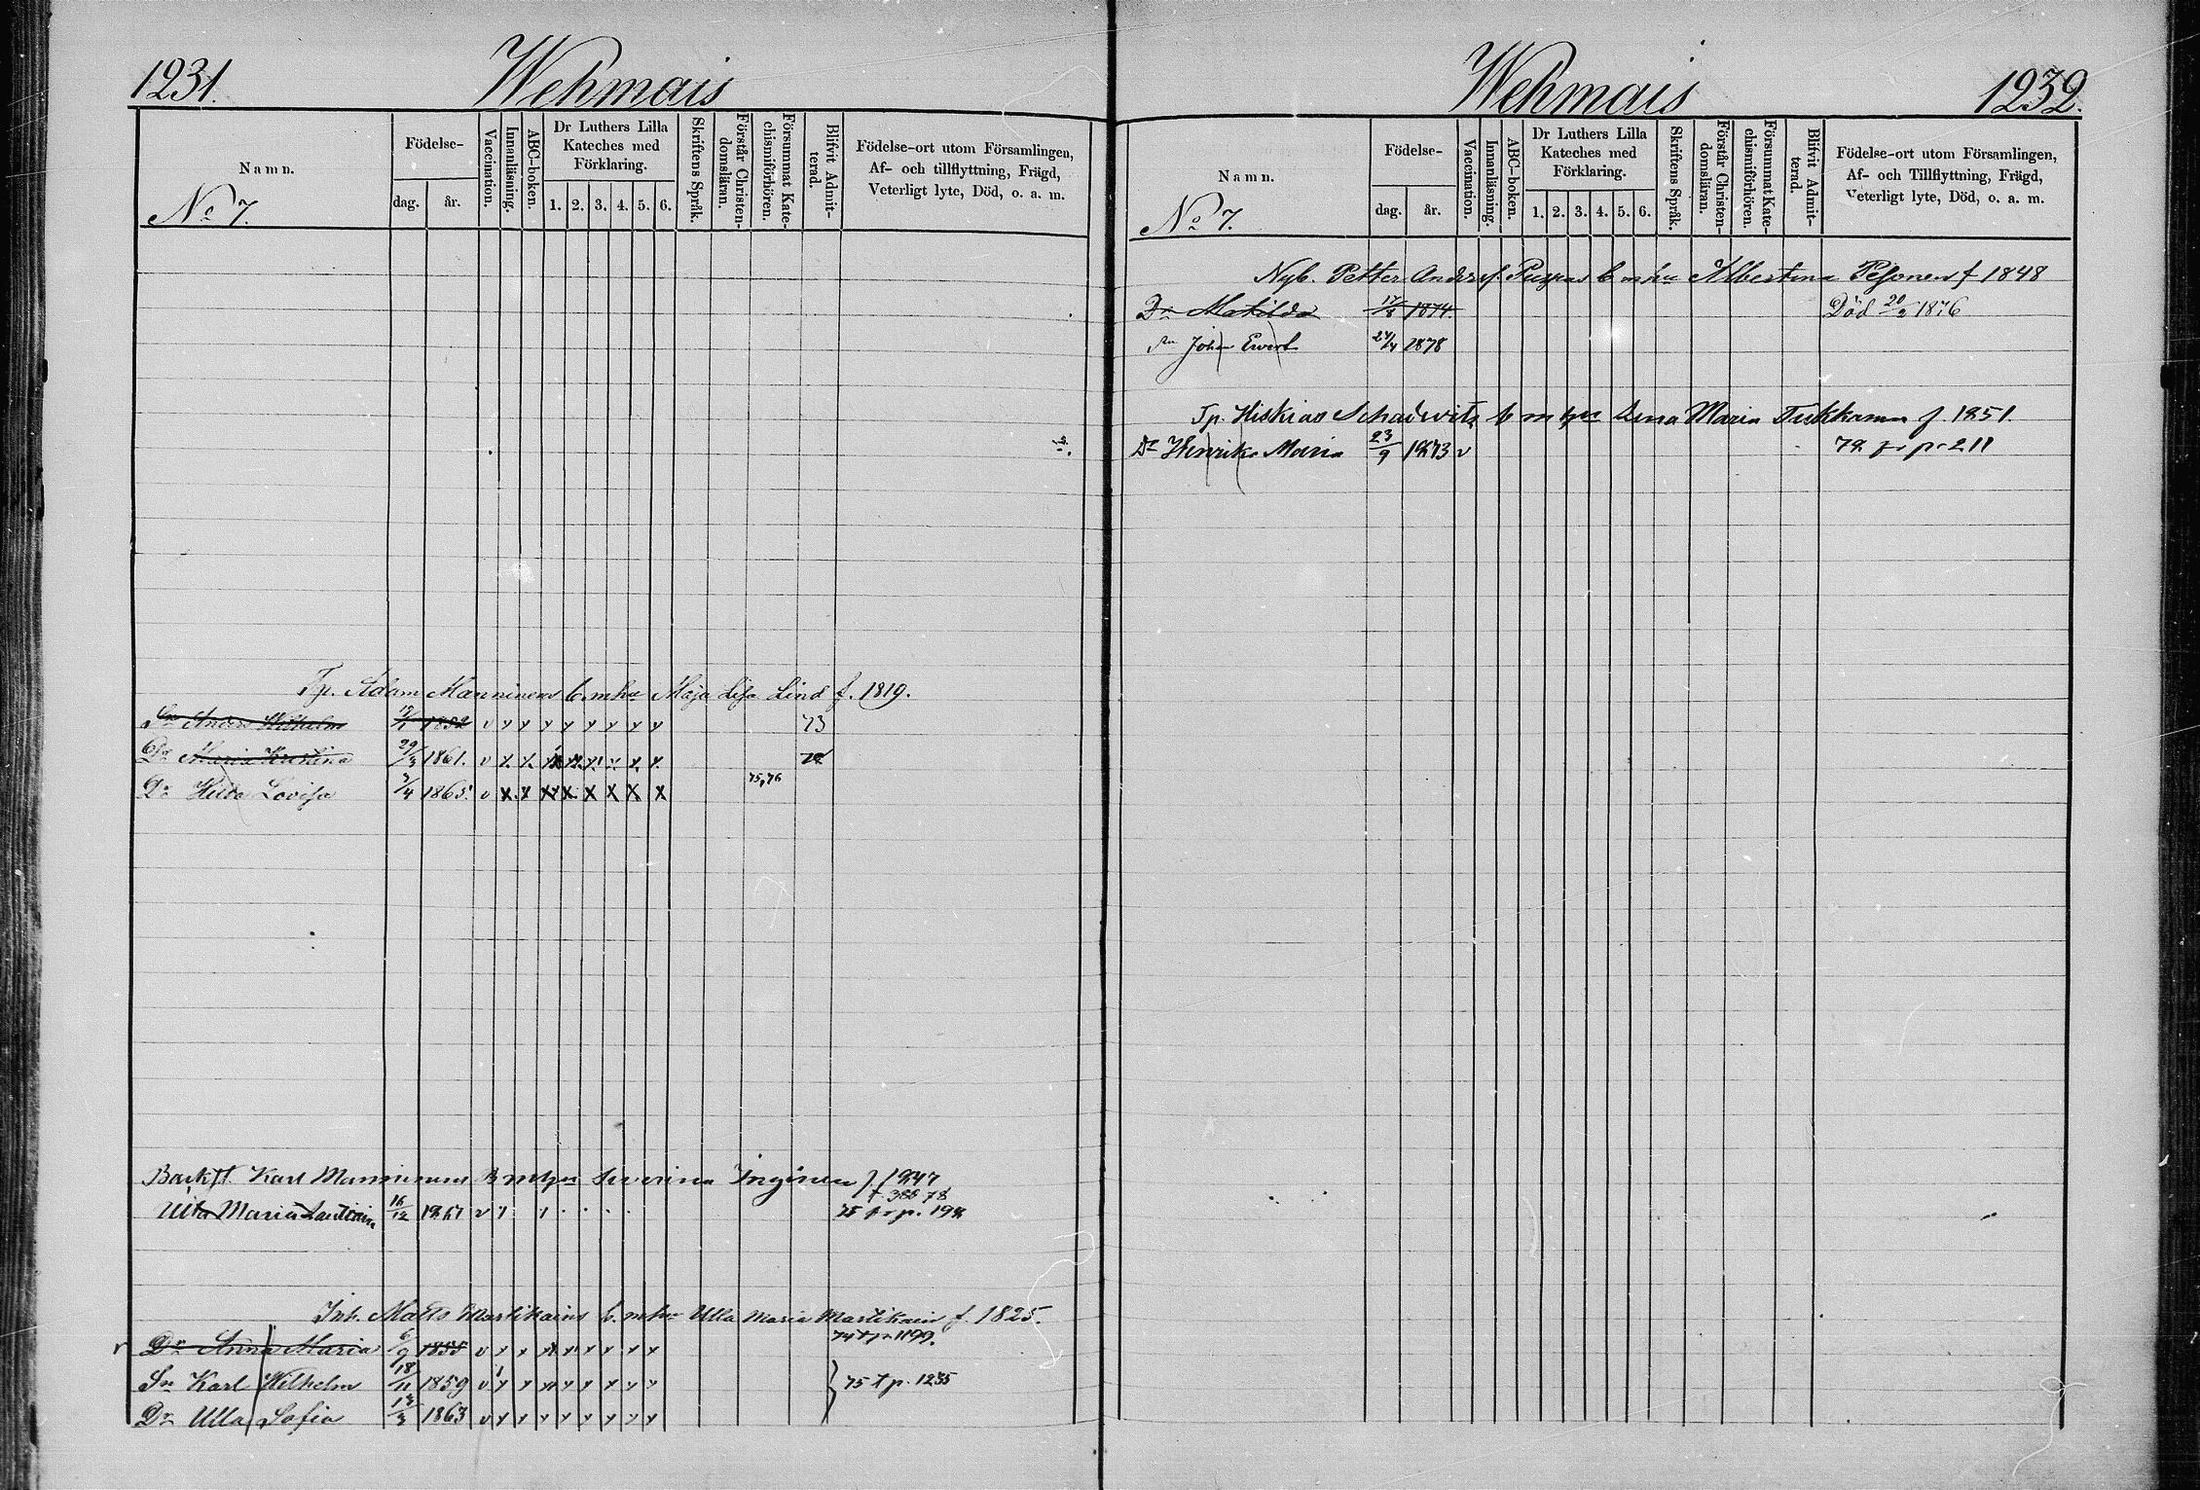 1231.
Wehmais
Namn.
No 7.
Födelse-
dag.
år.
Vaccination.
Innanläsning.
ABC-boken.
Dr Luthers Lilla
Kateches med
Förklaring.
1. 2. 3. 4. 5. 6.
Skriftens Språk.
Förstår Christen-
domsläran.
Försummat Kate-
chismiförhören.
Blifvit Admit-
terad.
Födelse-ort utom Församlingen,
Af- och tillflyttning, Frägd,
Veterligt lyte, Död, o. a. m.
Tp. Adam Manninens b. m hu Maja Lisa Lind f. 1819.
Sn Anders Wilhelm 1852 v 73
Dr Maria Kristina 29/3 1861. v
75,76
Dr Hilda Lovisa 3/4 1865. v
Karl Manninens Severina Inginen f. 1847
Ulla Maria Lautiain 16/12 1867 v 75 fr p. 198
Inh. Matts Martikains b. m hu Ulla Maria Martikain f. 1825.
Dr Anna Maria 6/9 1855 v
Sn Karl Wilhelm 18/11 1859 v 75 t p. 1235
Dr Ulla Sofia 13/3 1863 v
Wehmais
1232.
Namn.
No 7.
Födelse-
dag.
år.
Vaccination.
Innanläsning.
ABC-boken.
Dr Luthers Lilla
Kateches med
Förklaring.
1. 2. 3. 4. 5. 6.
Skriftens Språk.
Förstår Christen-
domsläran.
Försummat Kate-
chismiförhören.
Blifvit Admit-
terad.
Födelse-ort utom Församlingen,
Af- och Tillflyttning, Frägd,
Veterligt lyte, Död, o. a. m.
Nyb. Petter Andersf. b m hu Albertina Pesonen f 1848
Dr Matilda 1874 Död 20/2 1876
Sn Johan Evert 24/4 1878
Tp. Hiskias Schadevits b m hu Lena Maria Tukkanen f. 1851.
Dr Henrika Maria 23/9 1873 v 79 fr p. 211